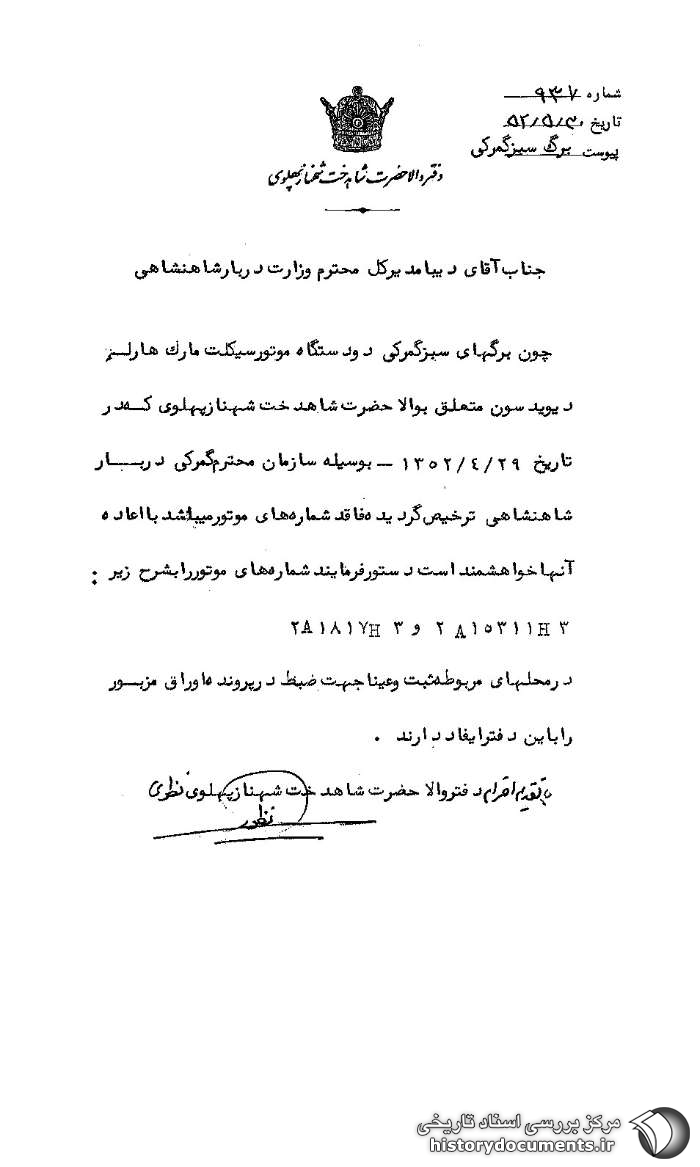 شماره ۹۳۷
تاریخ ۵۲/۵/۳۰
پیوست برگ سبز گمرکی
دفتر والاحضرت شاهدخت شهناز پهلوی
جناب آقای دیبا مدیرکل محترم وزارت دربار شاهنشاهی
چون برگهای سبز گمرکی دو دستگاه موتورسیکلت مارک هارلسی
دیوید سون متعلق بوالا حضرت شاهدخت شهناز پهلوی که در
تاریخ ۱۳۵۲/۴/۲۹ – بوسیله سازمان محترم گمرکی دربار
شاهنشاهی ترخیص گردیده فاقد شماره های موتور میباشد با اعاده
آنها خواهشمند است دستور فرمایند شماره های موتور را بشرح زیر :
۲A۱۸۱۷H ۳ و ۲A۱۵۳۱۱H ۳
در محلهای مربوطه ثبت و عینا جهت ضبط در پرونده اوراق مزبور
را باین دفتر ایفاد دارند .
با تقدیم احترام دفتر والا حضرت شاهدخت شهناز پهلوی نظری
مرکز بررسی اسناد تاریخی
historydocuments.ir